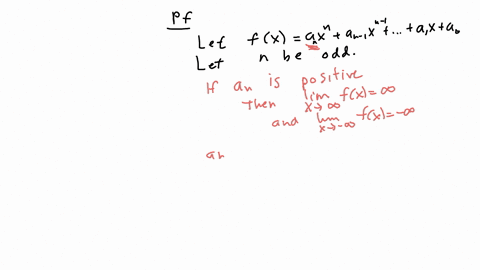 Pf
Let f(x) = aₙxⁿ + aₙ₋₁xⁿ⁻¹ + ... + a₁x + a₀
Let n be odd.
If aₙ is positive
Then lim x→∞ f(x) = ∞
and lim x→-∞ f(x) = -∞
an